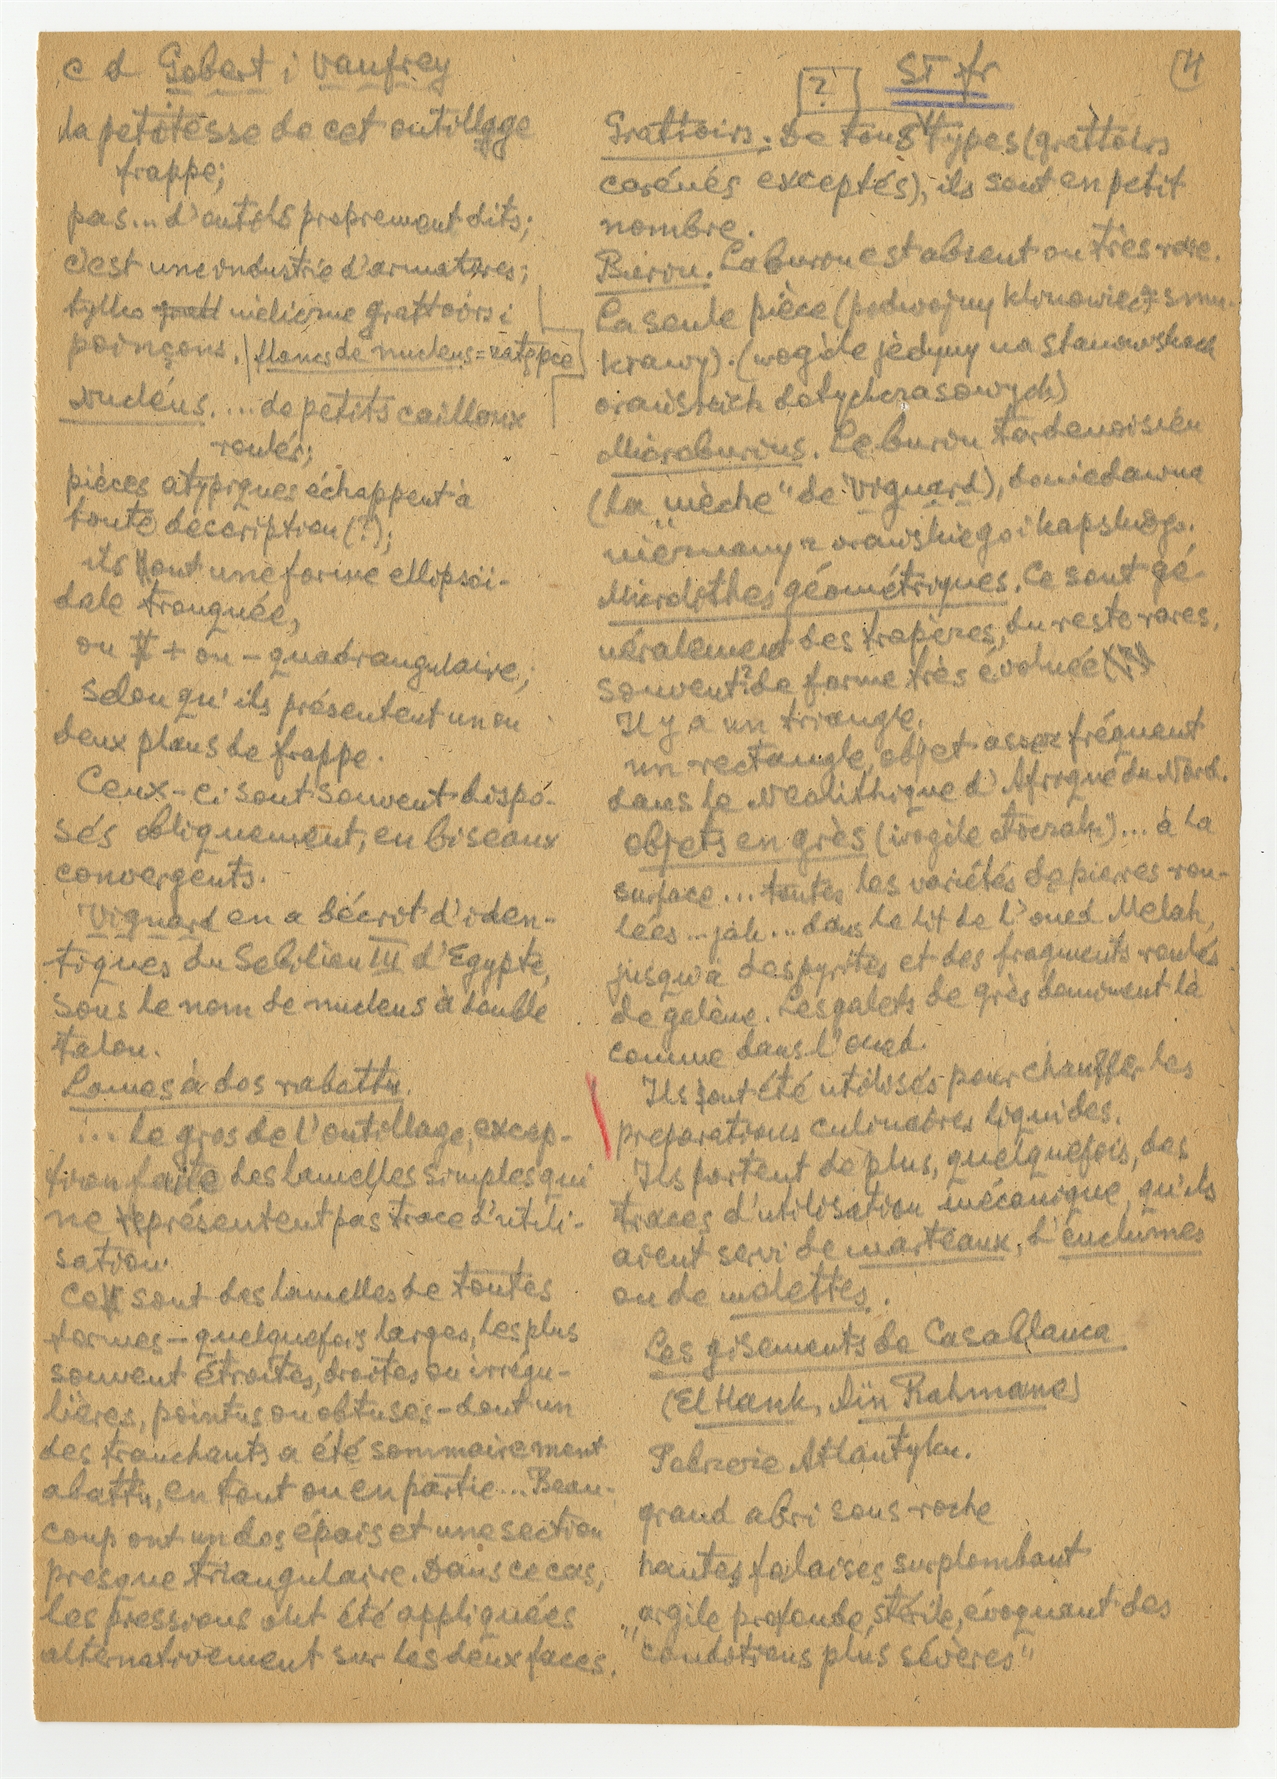 c d Gobert i Vaufrey
la petitesse de cet outillage
frappe;
pas... d'outils proprement dits;
c'est une industrie d'armatures;
tylko nieliczne grattoirs i
poinçons. flancs de nucleus =
Nucléus. ... de petits cailloux
roulés;
pièces atypiques échappent à
toute description (?);
ils ont une forme ellipsoï-
dale tronquée,
ou + ou - quadrangulaire,
selon qu'ils présentent un ou
deux plans de frappe.
Ceux-ci sont souvent dispo-
sés obliquement, en biseaux
convergents.
Vignard en a décrit d'iden-
tiques du Sebilien III d'Egypte,
sous le nom de nucleus à double
talon.
Lames à dos rabattu.
... le gros de l'outillage, excep-
tion faite des lamelles simples qui
ne représentent pas trace d'utili-
sation.
Ce sont des lamelles de toutes
formes - quelquefois larges, les plus
souvent étroites, droites ou irrégu-
lières, pointus ou obtuses - dont un
des tranchants a été sommairement
abattu, en tout ou en partie... Beau-
coup ont un dos épais et une section
presque triangulaire. Dans ce cas,
les pressions ont été appliquées
alternativement sur les deux faces.
? ST fr 4
Grattoirs. De tous types (grattoirs
carénés exceptés), ils sont en petit
nombre.
Burin. Le burin est absent ou très rare.
La seule pièce (podwójny
krawy). (wogóle jedyny na stanowiskach
orańskich dotychczasowych)
Microburins. Le burin tardenoisien
(la "mèche" de Vignard), doniedawna
nieznany z orańskiego i kapskiego.
Microlithes géométriques. Ce sont gé-
néralement des trapèzes, du reste rares,
souvent? de forme très évoluée (?)
Il y a un triangle.
un rectangle, objet assez fréquent
dans le Néolithique d'Afrique du Nord.
objets en grès (wogóle otoczaki)... à la
surface... toutes les variétés de pierres rou-
lées ... jak ... dans le lit de l'oued Melah,
jusqu'à des pyrites et des fragments roulés
de galène. Les galets de grès dominent là
comme dans l'oued.
Ils ont été utilisés pour chauffer les
préparations culinaires liquides.
Ils portent de plus, quelquefois, des
traces d'utilisation mécanique, qu'ils
aient servi de marteaux, d'enclumes
ou de molettes.
Les gisements de Casablanca
(El Hank, Aïn Rahmane)
Pobrzeże Atlantyku.
grand abri sous-roche
hautes falaises surplombant
"argile profonde, stérile, évoquant des
conditions plus sévères"